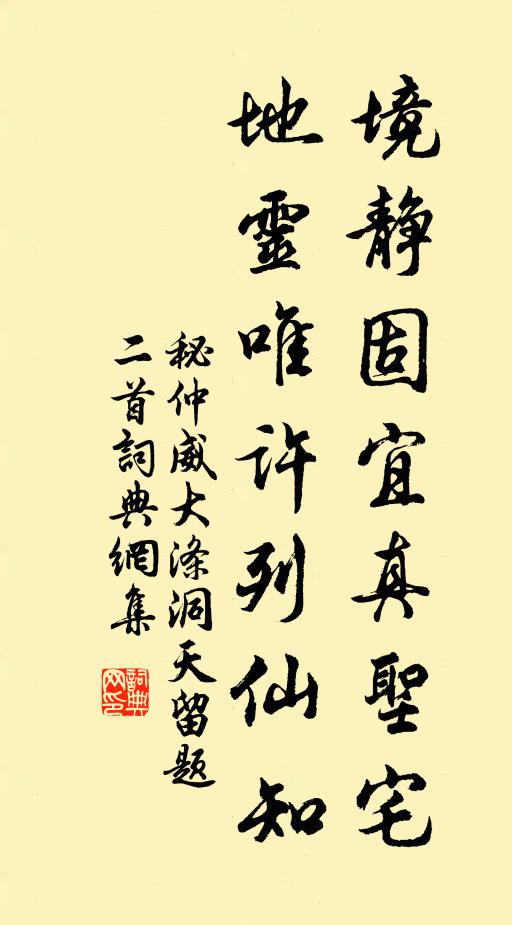 境静固宜真聖宅
地靈唯許列仙知
秘仲威大涤洞天留題
二首詞典網集
詞典
网印